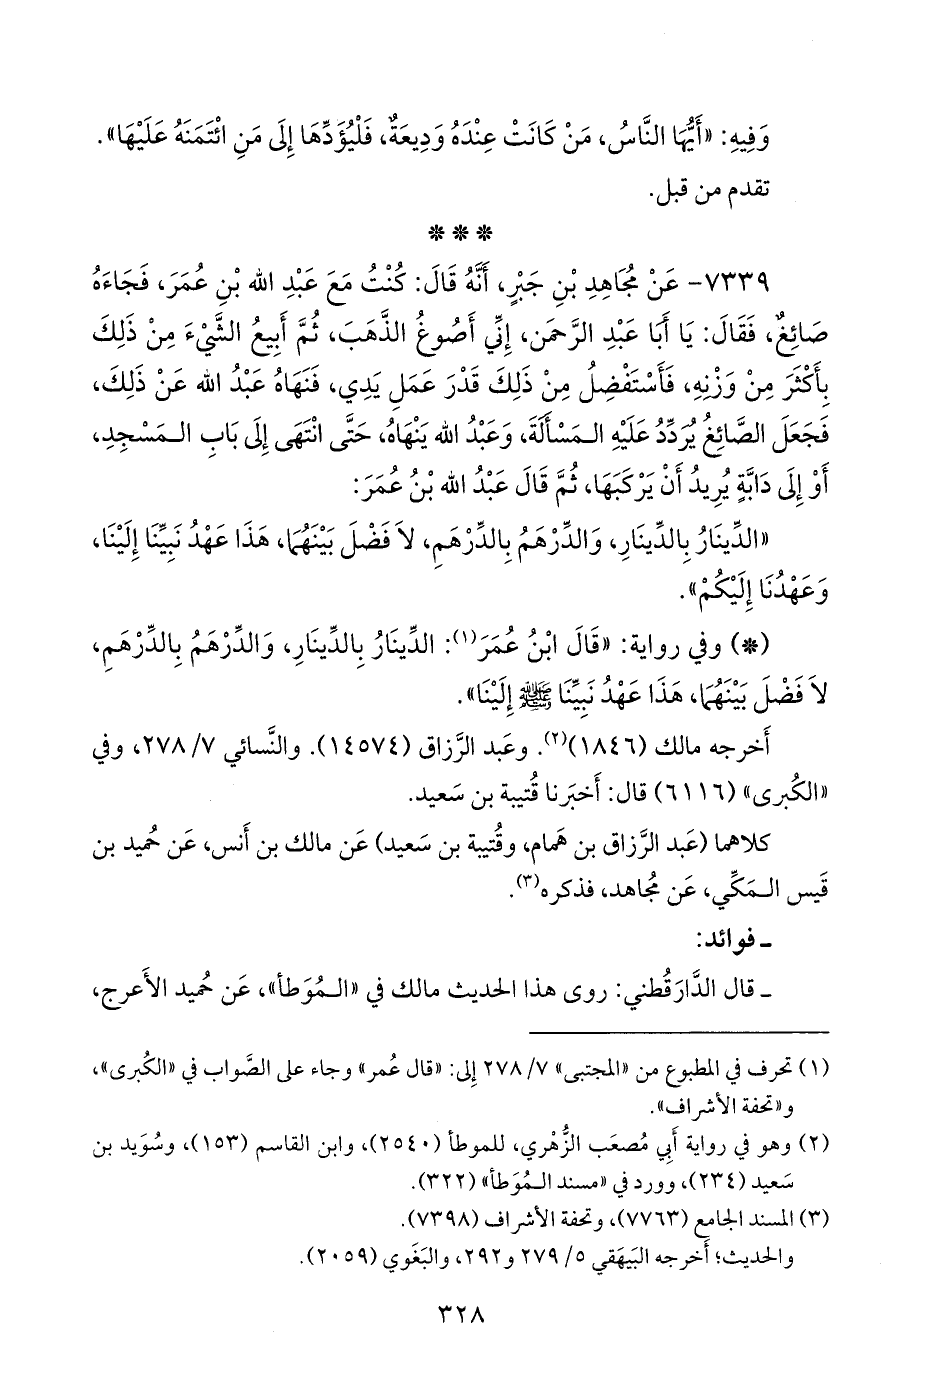 وَفِيهِ: «أَيُّهَا النَّاسُ، مَنْ كَانَتْ عِنْدَهُ وَدِيعَةٌ، فَلْيُؤَدِّهَا إِلَى مَنِ ائْتَمَنَهُ عَلَيْهَا».
تقدم من قبل.
* * *
٧٣٣٩- عَنْ مُجَاهِدِ بْنِ جَبْرٍ، أَنَّهُ قَالَ: كُنْتُ مَعَ عَبْدِ الله بْنِ عُمَرَ، فَجَاءَهُ
صَائِغٌ، فَقَالَ: يَا أَبَا عَبْدِ الرَّحمَنِ، إِنِّي أَصُوغُ الذَّهَبَ، ثُمَّ أَبِيعُ الشَّيْءَ مِنْ ذَلِكَ
بِأَكْثَرَ مِنْ وَزْنِهِ، فَأَسْتَفْضِلُ مِنْ ذَلِكَ قَدْرَ عَمَلِ يَدِي، فَنَهَاهُ عَبْدُ الله عَنْ ذَلِكَ،
فَجَعَلَ الصَّائِغُ يُرَدِّدُ عَلَيْهِ الـمَسْأَلَةَ، وَعَبْدُ الله يَنْهَاهُ، حَتَّى انْتَهَى إِلَى بَابِ الـمَسْجِدِ،
أَوْ إِلَى دَابَّةٍ يُرِيدُ أَنْ يَرْكَبَهَا، ثُمَّ قَالَ عَبْدُ الله بْنُ عُمَرَ:
«الدِّينَارُ بِالدِّينَارِ، وَالدِّرْهَمُ بِالدِّرْهَمِ، لاَ فَضْلَ بَيْنَهُمَا، هَذَا عَهْدُ نَبِيِّنَا إِلَيْنَا،
وَعَهْدُنَا إِلَيْكُمْ».
(*) وفي رواية: «قَالَ ابْنُ عُمَرَ(١): الدِّينَارُ بِالدِّينَارِ، وَالدِّرْهَمُ بِالدِّرْهَمِ،
لاَ فَضْلَ بَيْنَهُمَا، هَذَا عَهْدُ نَبِيِّنَا ﷺ إِلَيْنَا».
أَخرجه مالك (١٨٤٦)(٢). وعَبد الرَّزاق (١٤٥٧٤). والنَّسائي ٧/ ٢٧٨، وفي
«الكُبرى» (٦١١٦) قال: أَخبَرنا قُتيبة بن سَعيد.
كلاهما (عَبد الرَّزاق بن هَمام، وقُتيبة بن سَعيد) عَن مالك بن أَنس، عَن حُميد بن
قَيس الـمَكِّي، عَن مُجاهد، فذكره(٣).
ـ فوائد:
ـ قال الدَّارَقُطني: روى هذا الحديث مالك في «الـمُوَطأ»، عَن حُميد الأَعرج،
(١) تحرف في المطبوع من «المجتبى» ٧/ ٢٧٨ إلى: «قال عُمر» وجاء على الصَّواب في «الكُبرى»،
و«تحفة الأشراف».
(٢) وهو في رواية أَبي مُصعَب الزُّهْري، للموطأ (٢٥٤٠)، وابن القاسم (١٥٣)، وسُوَيد بن
سَعيد (٢٣٤)، وورد في «مسند الـمُوَطأ» (٣٢٢).
(٣) المسند الجامع (٧٧٦٣)، وتحفة الأشراف (٧٣٩٨).
والحديث؛ أَخرجه البَيهَقي ٥/ ٢٧٩ و٢٩٢، والبَغَوي (٢٠٥٩).
٣٢٨